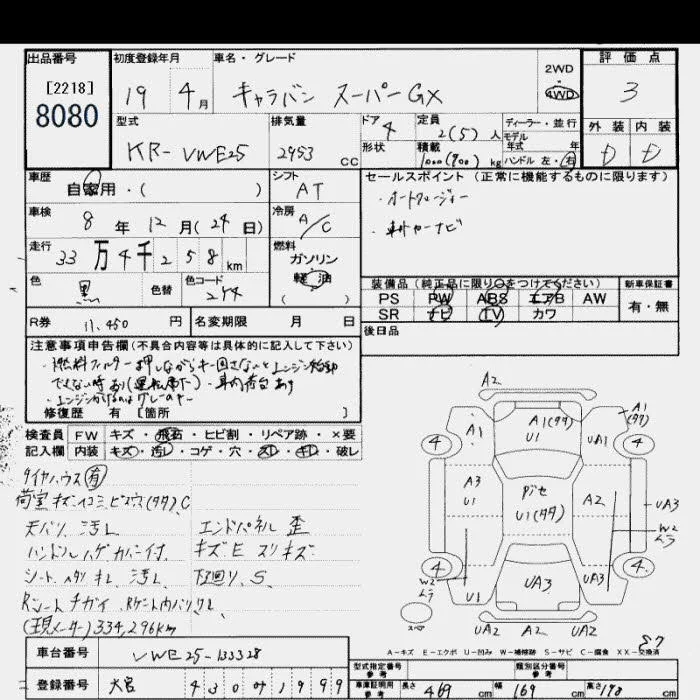 出品番号
[2218]
8080
初度登録年月
19 4月
車名・グレード
キャラバン スーパーGX
2WD
4WD
評価点
3
外装 内装
D D
型式
KR-VWE25
排気量
2953 cc
ドア 4
形状
定員 2(5) 人
積載 1000(900) kg
ディーラー・並行
モデル年式 年
ハンドル 左・右
車歴
自家用・( )
シフト
AT
セールスポイント(正常に機能するものに限ります)
・オートクロージャー
車検
8 年 12 月(24日)
冷房
A/C
走行
33万4千258km
燃料
ガソリン
軽油
( )
色
黒
色替
色コード
装備品(純正品に限り○をつけてください)
PS PW ABS エアB AW
SR ナビ TV カワ
新車保証書
有・無
R券 11,450 円
名変期限 月 日
後日品
注意事項申告欄(不具合内容等は具体的に記入して下さい)
・燃料フィルター押しながらキー回さないとエンジン始動
できない時あり(運転席下)・車内荷台あり
修復歴 有 [箇所 ]
検査員 FW キズ・飛石・ヒビ割・リペア跡・×要
記入欄 内装 キズ・汚レ・コゲ・穴・スレ・キレ・破レ
タイヤハウス(有)
荷室キズ.イコミ.ビス穴(タタ).C
天バリ 汚レ エンドパネル 歪
ハンドル ハゲ カバー付 キズ E スリキズ
シート.ヘタリ キレ.汚レ 下廻リ.S
Rシートチガイ.Rゲート内バリワレ
(現メーター)334,296km
A2
A1 A1(タタ) U1 UA1 A1(タタ)
4 4
A3 U1 Pセ U1(タタ) A2 UA3
W2 ムラ
4 4
W2 ムラ U1 UA3 UA3
スペア
UA2 A2 UA2
57
A-キズ E-エクボ U-凹み W-補修跡 S-サビ C-腐食 XX-交換済
車台番号 VWE25-133328
登録番号 大宮 430 め 1999
型式指定番号
類別区分番号
参考
参考
車庫証明用参考 長さ 469 cm 幅 169 cm 高さ 198 cm